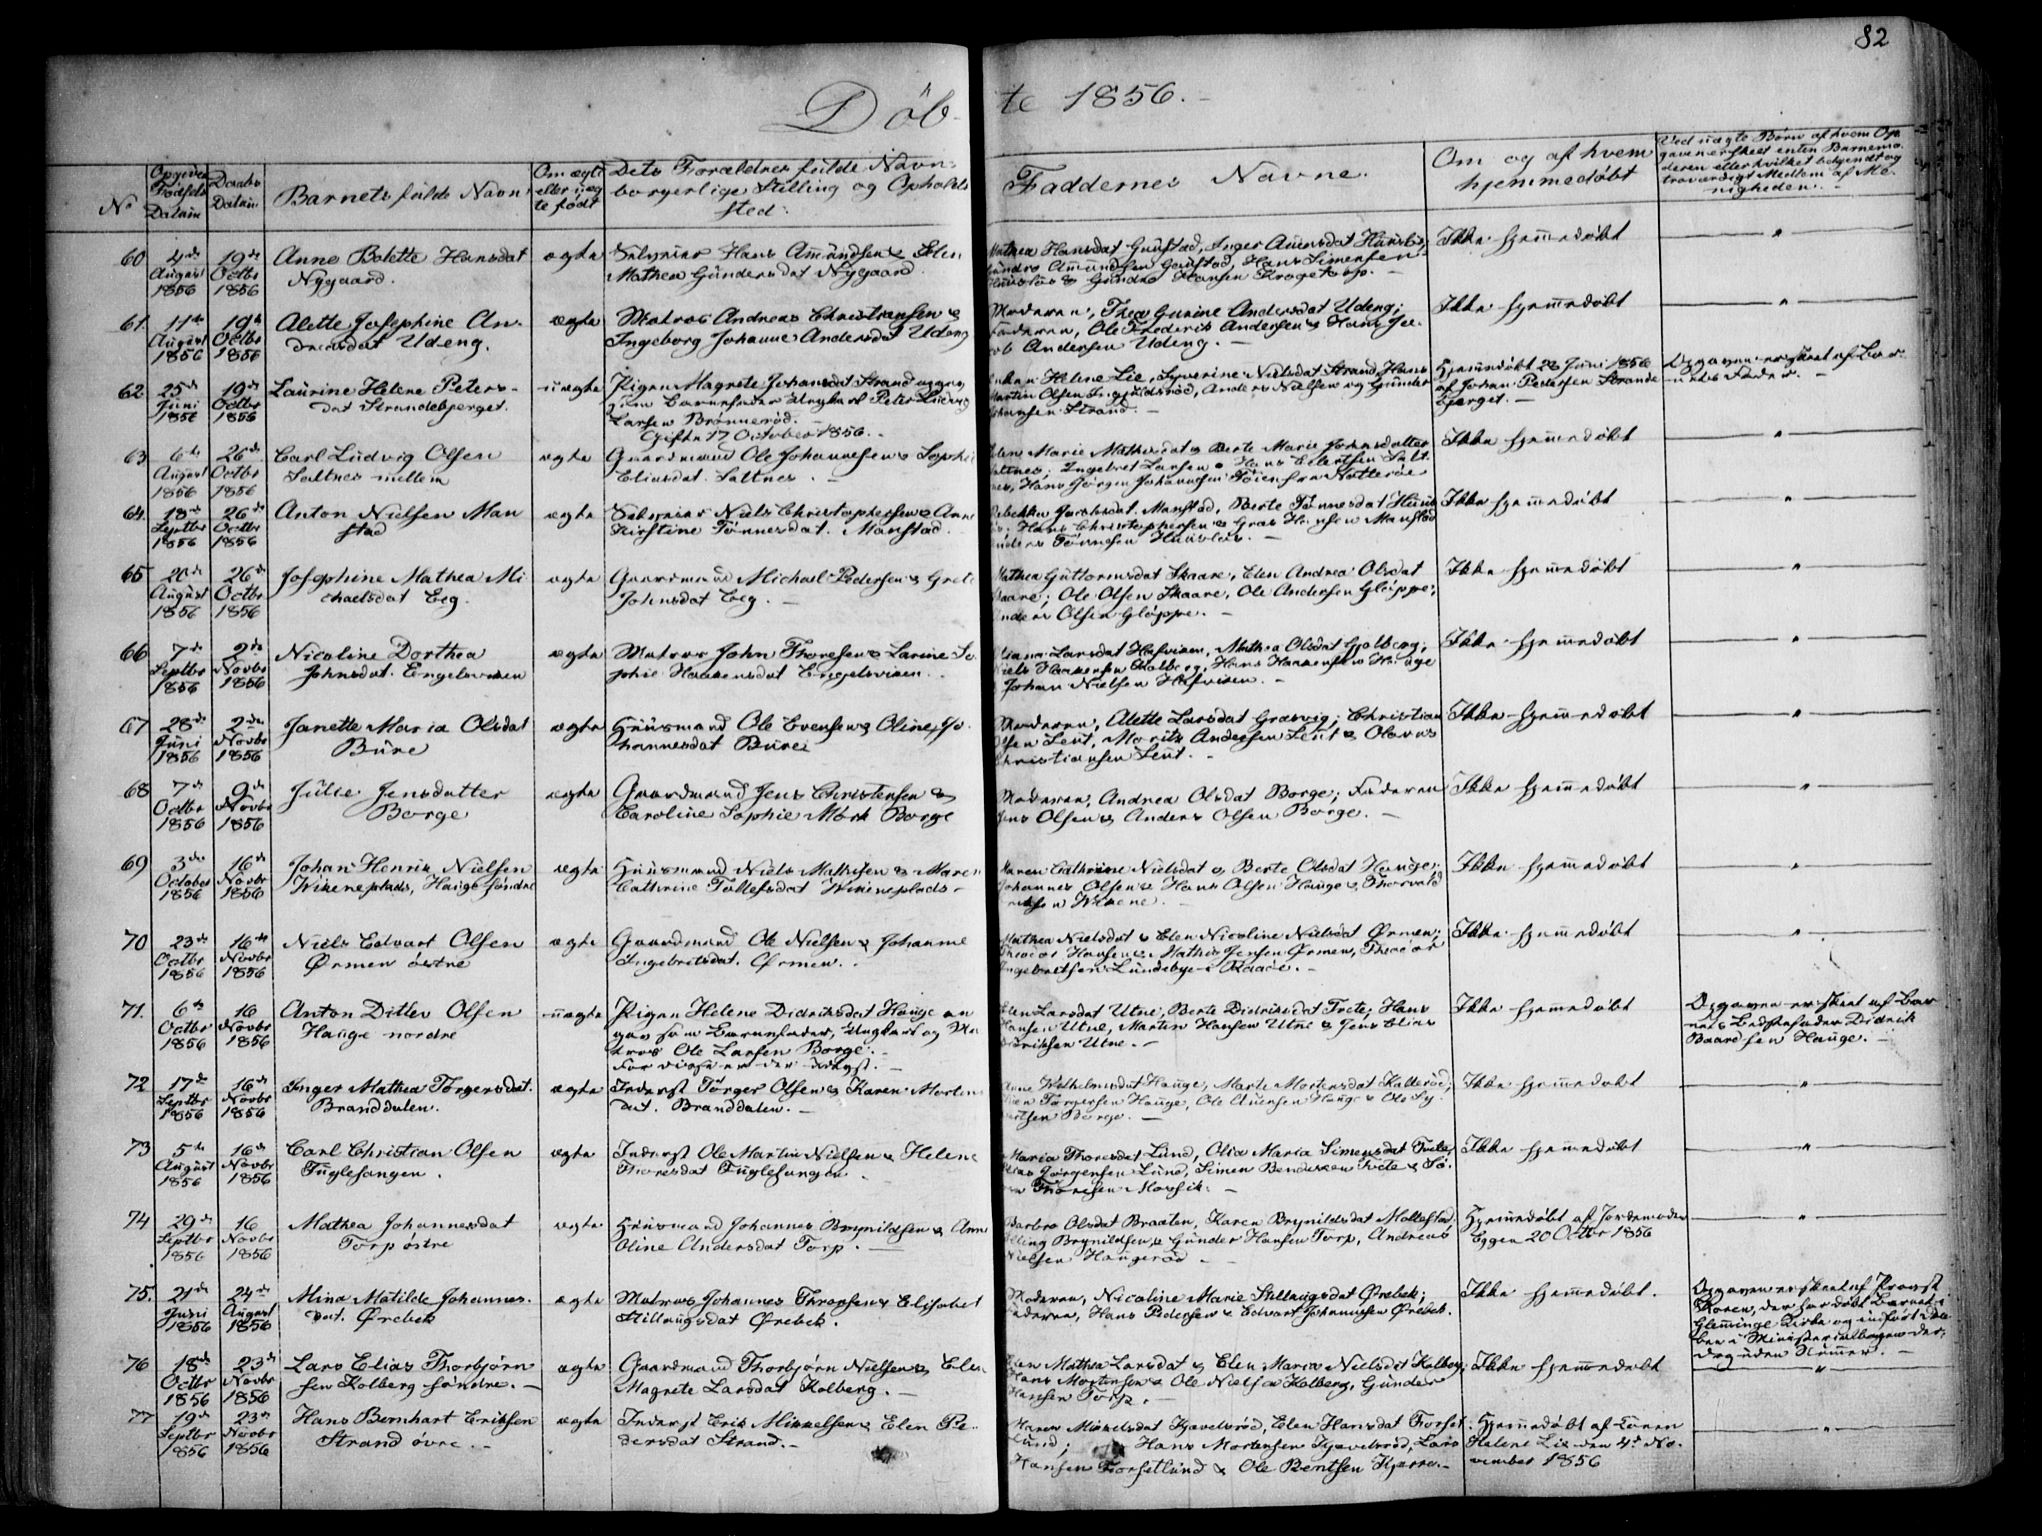 82
Döbte 1856.
No
Opgiven Födsels Datum
Daabs Datum
Barnets fulde Navn
Om ægte eller uægte født
Dets Forældres fulde Navn,
borgerlige Stilling og Opholds
sted.
Faddernes Navne.
Om og af hvem
hjemmedøbt
Ved uægte Børn af hvem Op-
gaven er skeet enten Barnemo-
deren eller hvilket bekjendt og
troværdigt Medlem af Me-
nigheden.
60 4de August 1856 19de Octbr 1856
Anne Bolette Hansdat
Nygaard.
ægte
Selveier Hans Amundsen & Elen
Mathea Gundersdat Nygaard
Mathea Hansdat Gaustad, Inger
Amundsen Gaustad, Hans Simensen
& Gunder Hansen Krogetorp.
Ikke hjemmedøbt
61. 11te August 1856 19de Octbr 1856
Alette Josephine An-
dreasdat Udeng.
ægte
Matros Andreas Christiansen &
Ingeborg Johanne Andersdat Udeng
Moderen, Thea Gurine Andersdat Udeng;
Faderen, Ole Frederik Andersen & Hans Ja-
cob Andersen Udeng.
Ikke hjemmedøbt
62 25de Juni 1856 19de Octbr 1856
Laurine Helene Peters-
dat Strandebjerget.
uægte
Pigen Magrete Johansdat Strand
som Barnefader Ungkarl Peter Ludvig
Larsen Brønnerød.
Gifte 17 October 1856.
Enken Helene Lie, Syverine Nielsdat Strand, Hans
Martin Olsen Ingjeldsrød, Anders Nielsen og Gunder
Johansen Strand.
Hjemmedøbt 28 Juni 1856
af Johan Pedersen Strande
bjerget.
Opgaven er skeet af Bar-
nets Fader.
63 6te August 1856 26de Octbr 1856
Carl Ludvig Olsen
Saltnes mellem
ægte
Gaardmand Ole Johannesen & Sophie
Eliasdat. Saltnes.
Marie Mathisdat & Berte Marie Johansdatter
Saltnes; Ingebret Larsen & Hans Eilertsen Salt
nes, Hans Jørgen Johannesen Føien fra Nøtterøe
Ikke hjemmedøbt
64. 18de Septbr 1856 26de Octbr 1856
Anton Nielsen Man
stad
ægte
Selveier Niels Christophersen & Anne
Kirstine Tønnesdat. Manstad.
Rebekka Jacobsdat. Manstad, Berte Tønnesdat
Hans Christophersen & Hansen Manstad
Anders Tønnesen
Ikke hjemmedøbt
65 20de August 1856 26de Octbr 1856
Josephine Mathea Mi
chaelsdat Eeg.
ægte
Gaardmand Michael Pedersen & Grete
Johnsdat Eeg.
Mathea Guttormsdat Skaare, Elen Andrea Olsdat
Skaare; Ole Olsen Skaare, Ole Andersen Gløppe;
Anders Olsen Gløppe.
Ikke hjemmedøbt
66 7de Septbr 1856 2de Novbr 1856
Nicoline Dorthea
Johnsdat. Engelsviken
ægte
Matros John Thoresen & Larine So-
phie Haakensdat Engelsviken.
Larsdat Husviken, Mathea Olsdat Golberg;
Niels Haakensen Kolberg, Hans Haakensen Hauge
Johan Nielsen Husviken.
Ikke hjemmedøbt
67 28de Juni 1856 2den Novbr 1856
Janette Maria Olsdat
Bure
ægte
Huusmand Ole Evensen & Oline Jo-
hannesdat Bure
Moderen, Alette Larsdat Græsvig; Christian
Olsen Leut, Moritz Andersen Leut & Olavus
Christiansen Leut.
Ikke hjemmedøbt
68 7de Octbr 1856 9de Novbr 1856
Julie Jensdatter
Borge
ægte
Gaardmand Jens Christensen &
Caroline Sophie Mørk Borge
Moderen, Andrea Olsdat Borge; Faderen
Jens Olsen & Anders Olsen Borge.
Ikke hjemmedøbt
69 3die October 1856 16de Novbr 1856
Johan Henrik Nielsen
Vikeneplads, Hauge søndre
ægte
Huusmand Niels Mathisen & Maren
Cathrine Tollefsdat Vikeneplads
Maren Cathrine Nielsdat & Berte Olsdat Hauge;
Johannes Olsen & Hans Olsen Hauge & Thorvald
Eriksen Vikene.
Ikke hjemmedøbt
70 23de Octbr 1856 16de Novbr 1856
Niels Edvart Olsen
Ørmen østre
ægte
Gaardmand Ole Nielsen & Johanne
Ingebretsdat. Ørmen.
Mathea Nielsdat & Elen Nicoline Nielsdat Ørmen;
Theodor Hansen & Mathis Jensen Ørmen, Theodor
Ingebretsen Lundebye i Raade.
Ikke hjemmedøbt
71. 6te Octbr 1856 16 Novbr 1856
Anton Ditlev Olsen
Hauge nordre
uægte
Pigen Helene Didriksdat Hauge an
gav som Barnefader, Ungkarl og Ma
tros Ole Larsen Borge.
For disse er der udlyst.
Elen Larsdat Utne, Berte Didriksdat Tvete, Hans
Hansen Utne, Martin Hansen Utne & Jens Elias
Didriksen Utne.
Ikke hjemmedøbt
Opgaven er skeet af Bar
nets Bedstefader Didrik
Baardsen Hauge.
72 17de Septbr 1856 16de Novbr 1856
Inger Mathea Torgersdat.
Branddalen.
ægte
Inderst Torger Olsen & Karen Martins
dat. Branddalen.
Anne Wilhelmsdat Hauge, Marte Mortensdat Kallerød,
Torgersen Hauge, Ole Auensen Hauge & Ole Sy
vertsen Borge.
Ikke hjemmedøbt
73 5te August 1856 16de Novbr 1856
Carl Christian Olsen
Fuglesangen
ægte
Inderst Ole Martin Nielsen & Helene
Thoresdat Fuglesangen.
Maria Thoresdat Lund, Olea Maria Simensdat Tvete,
Jørgensen Lund, Simen Bendixen Tvete & Sø
ren Thoresen Mossik.
Ikke hjemmedøbt
74 29de Septbr 1856 16 Novbr 1856
Mathea Johannesdat
Torp østre
ægte
Huusmand Johannes Brynildsen & Anne
Oline Andersdat Torp.
Barbro Olsdat Braaten, Karen Brynildsdat Mallestad
Elling Brynildsen & Gunder Hansen Torp, Andreas
Nielsen Haugerød
Hjemmedøbt af Jordemoder
Eggen 20 Octbr 1856
75. 21de Juni 1856 24de August 1856
Mina Matilde Johannes-
dat. Ørebek
ægte
Matros Johannes Thorsen & Elisabet
Stillaugsdat Ørebek.
Moderen, Nicoline Marie Stillaugsdat Ørebek;
Faderen, Hans Pedersen & Edvart Johannesen Ørebek.
Ikke hjemmedøbt.
Opgaven er skeet af Provst
Koren, der har døbt Barnet i
Glemminge Kirke og indført Daa
ben i Ministerialbogen der,
dog uden Numer.
76 18de Octbr 1856 23de Novbr 1856
Lars Elias Thorbjørn
sen Kolberg søndre.
ægte
Gaardmand Thorbjørn Nielsen & Elen
Magrete Larsdat Kolberg.
Elen Mathea Larsdat & Elen Maria Nielsdat Kolberg;
Hans Mortensen & Ole Nielsen Kolberg, Gunder
Hansen Torp.
Ikke hjemmedøbt
77 19de Septbr 1856 23de Novbr 1856
Hans Bernhart Eriksen
Strand øvre.
ægte
Inderst Erik Mikkelsen & Elen Pe-
dersdat Strand.
Maren Mikkelsdat Kjøvelsrød, Elen Hansdat Forset
lund; Hans Mortensen Kjøvelsrød, Lars
Hansen Forsetlund & Ole Berntsen Kjærre.
Hjemmedøbt af Enken
Helene Lie den 4de No-
vember 1856